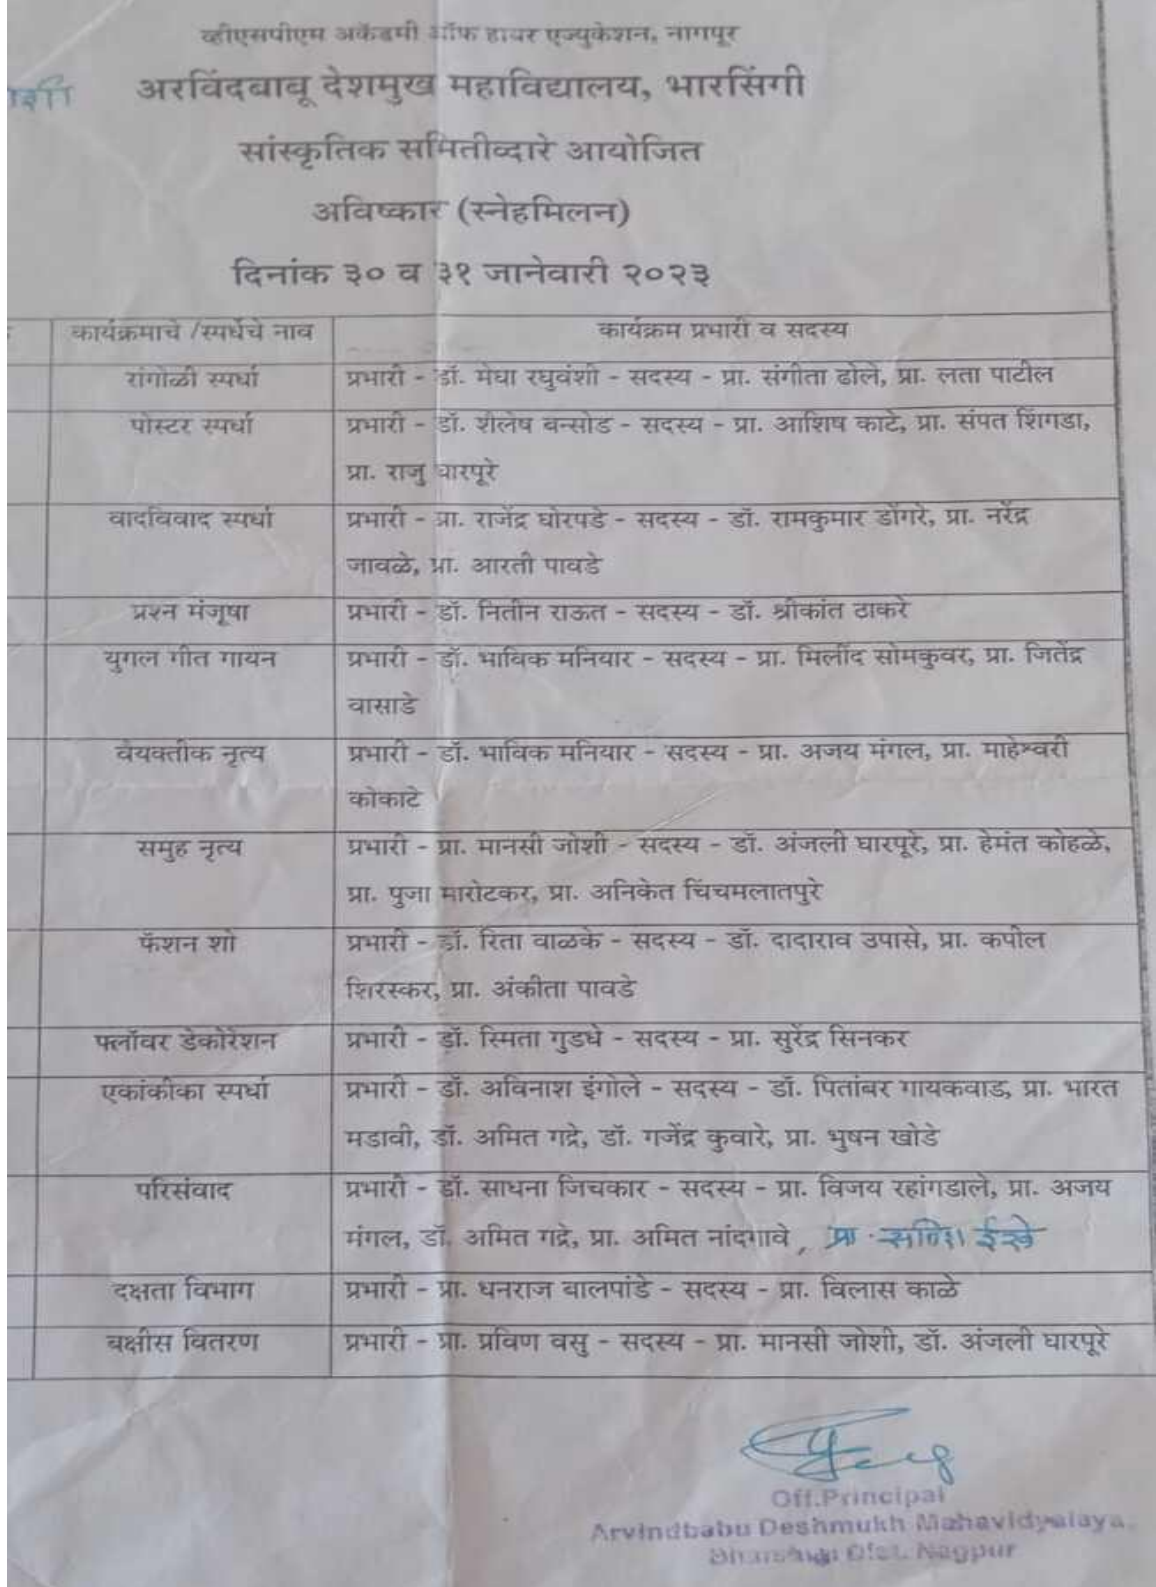 व्हीएसपीएम अकॅडमी ऑफ हायर एज्युकेशन, नागपूर
अरविंदबाबू देशमुख महाविद्यालय, भारसिंगी
सांस्कृतिक समितीव्दारे आयोजित
अविष्कार (स्नेहमिलन)
दिनांक ३० व ३१ जानेवारी २०२३
कार्यक्रमाचे /स्पर्धेचे नाव कार्यक्रम प्रभारी व सदस्य
रांगोळी स्पर्धा प्रभारी - डॉ. मेघा रघुवंशी - सदस्य - प्रा. संगीता ढोले, प्रा. लता पाटील
पोस्टर स्पर्धा प्रभारी - डॉ. शैलेष बन्सोड - सदस्य - प्रा. आशिष काटे, प्रा. संपत शिंगडा,
प्रा. राजु घारपूरे
वादविवाद स्पर्धा प्रभारी - प्रा. राजेंद्र घोरपडे - सदस्य - डॉ. रामकुमार डोंगरे, प्रा. नरेंद्र
जावळे, प्रा. आरती पावडे
प्रश्न मंजूषा प्रभारी - डॉ. नितीन राऊत - सदस्य - डॉ. श्रीकांत ठाकरे
युगल गीत गायन प्रभारी - डॉ. भाविक मनियार - सदस्य - प्रा. मिलींद सोमकुवर, प्रा. जितेंद्र
वासाडे
वैयक्तीक नृत्य प्रभारी - डॉ. भाविक मनियार - सदस्य - प्रा. अजय मंगल, प्रा. माहेश्वरी
कोकाटे
समुह नृत्य प्रभारी - प्रा. मानसी जोशी - सदस्य - डॉ. अंजली घारपूरे, प्रा. हेमंत कोहळे,
प्रा. पुजा मारोटकर, प्रा. अनिकेत चिंचमलातपुरे
फॅशन शो प्रभारी - डॉ. रिता वाळके - सदस्य - डॉ. दादाराव उपासे, प्रा. कपील
शिरस्कर, प्रा. अंकीता पावडे
फ्लॉवर डेकोरेशन प्रभारी - डॉ. स्मिता गुडधे - सदस्य - प्रा. सुरेंद्र सिनकर
एकांकीका स्पर्धा प्रभारी - डॉ. अविनाश इंगोले - सदस्य - डॉ. पितांबर गायकवाड, प्रा. भारत
मडावी, डॉ. अमित गद्रे, डॉ. गजेंद्र कुवारे, प्रा. भुषन खोडे
परिसंवाद प्रभारी - डॉ. साधना जिचकार - सदस्य - प्रा. विजय रहांगडाले, प्रा. अजय
मंगल, डॉ. अमित गद्रे, प्रा. अमित नांदगावे, प्रा.
दक्षता विभाग प्रभारी - प्रा. धनराज बालपांडे - सदस्य - प्रा. विलास काळे
बक्षीस वितरण प्रभारी - प्रा. प्रविण वसु - सदस्य - प्रा. मानसी जोशी, डॉ. अंजली घारपूरे
Off.Principal
Arvindbabu Deshmukh Mahavidyalaya,
Dist. Nagpur